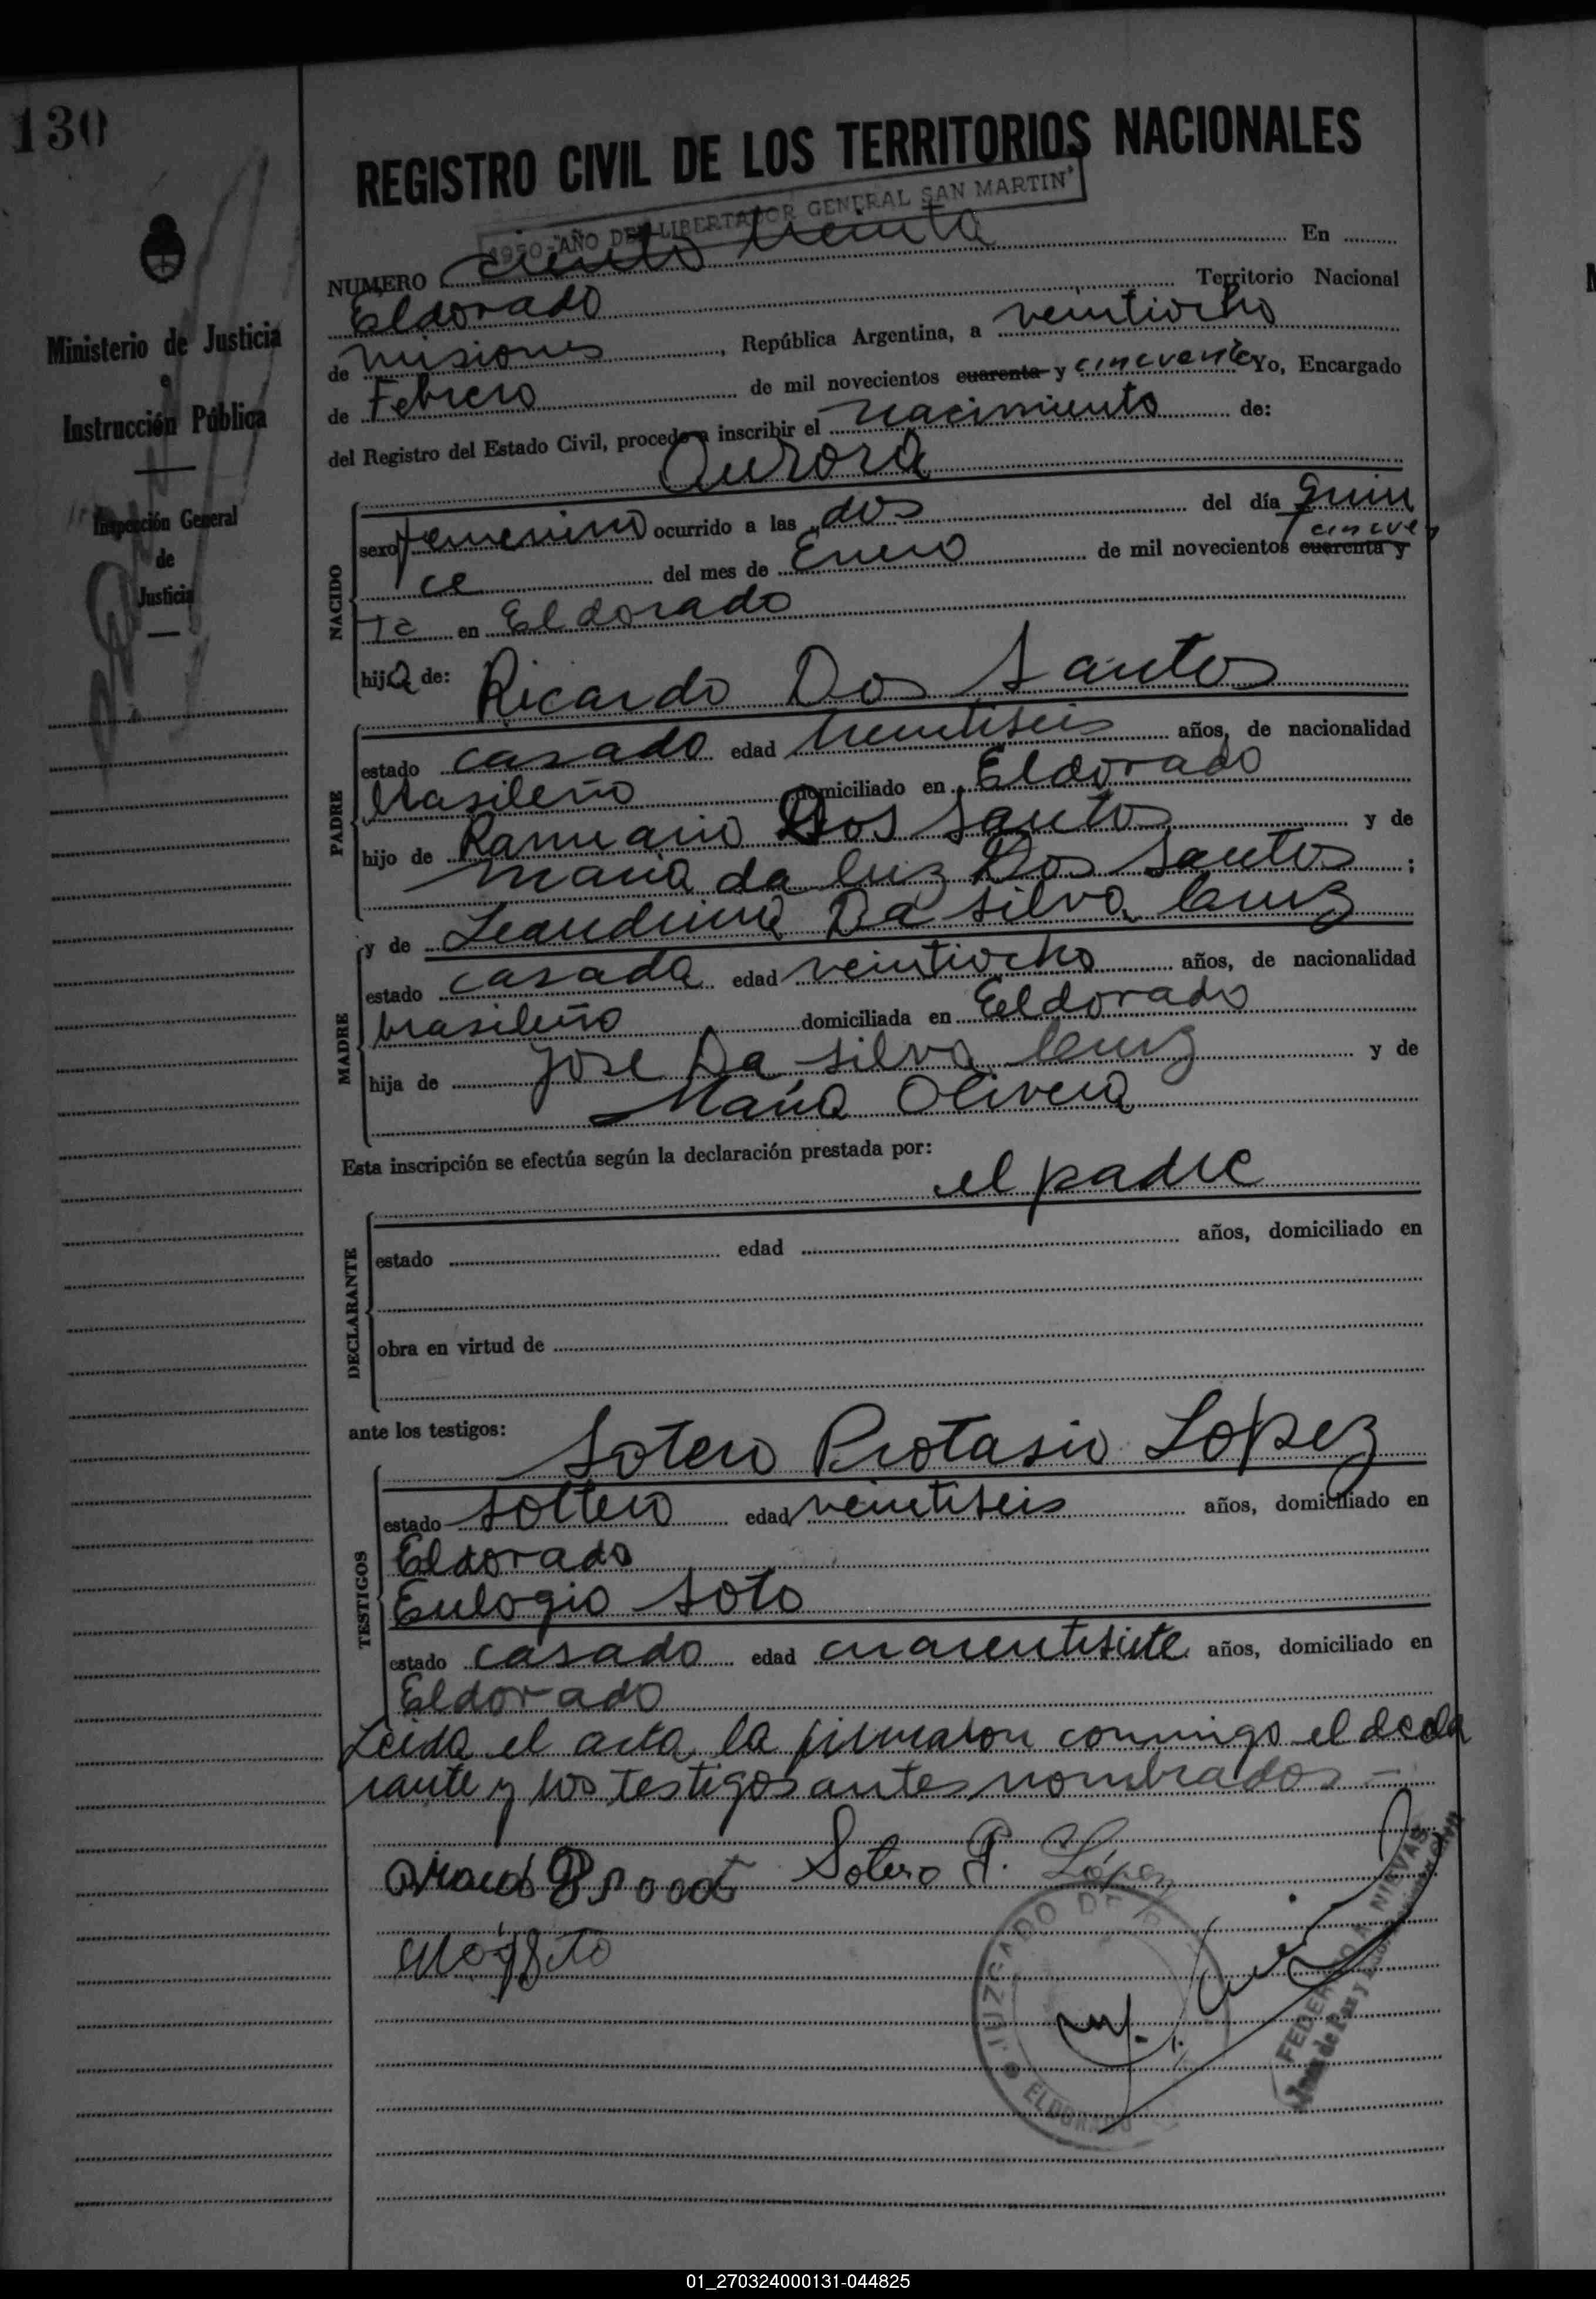 130
REGISTRO CIVIL DE LOS TERRITORIOS NACIONALES
1950 - "AÑO DEL LIBERTADOR GENERAL SAN MARTIN"
Ministerio de Justicia
e
Instrucción Pública
Inspección General
de
Justicia
NUMERO ciento treinta En
Eldorado Territorio Nacional
de Misiones, República Argentina, a veintiocho
de Febrero de mil novecientos cuarenta y cincuenta Yo, Encargado
del Registro del Estado Civil, procedo a inscribir el nacimiento de:
Aurora
NACIDO
sexo femenino ocurrido a las dos del día quin
ce del mes de Enero de mil novecientos cuarenta y cincuen
ta en Eldorado
hija de: Ricardo Dos Santos
PADRE
estado casado edad treintiseis años, de nacionalidad
brasileño domiciliado en Eldorado
hijo de Dos Santos y de
Maria da Luz Dos Santos ;
y de Leandrina Da Silva Cruz
MADRE
estado casada edad veintiocho años, de nacionalidad
brasileño domiciliada en Eldorado
hija de Jose Da Silva Cruz y de
Maria Olivera
Esta inscripción se efectúa según la declaración prestada por:
el padre
DECLARANTE
estado edad años, domiciliado en
obra en virtud de
ante los testigos:
Sotero Protasio Lopez
TESTIGOS
estado soltero edad veintiseis años, domiciliado en
Eldorado
Eulogio Soto
estado casado edad cuarentisiete años, domiciliado en
Eldorado
Leida el acta, la firmaron conmigo el decla
rante y los testigos antes nombrados -
Sotero P. López
JUZGADO DE
ELDORADO
FEDERICO A. NIEVAS
Juez de Paz y
01_270324000131-044825